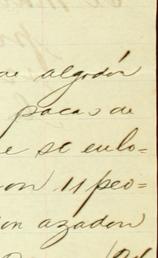 de algodón
pacas de
e se enlo=
con 11 peo=
con azadon